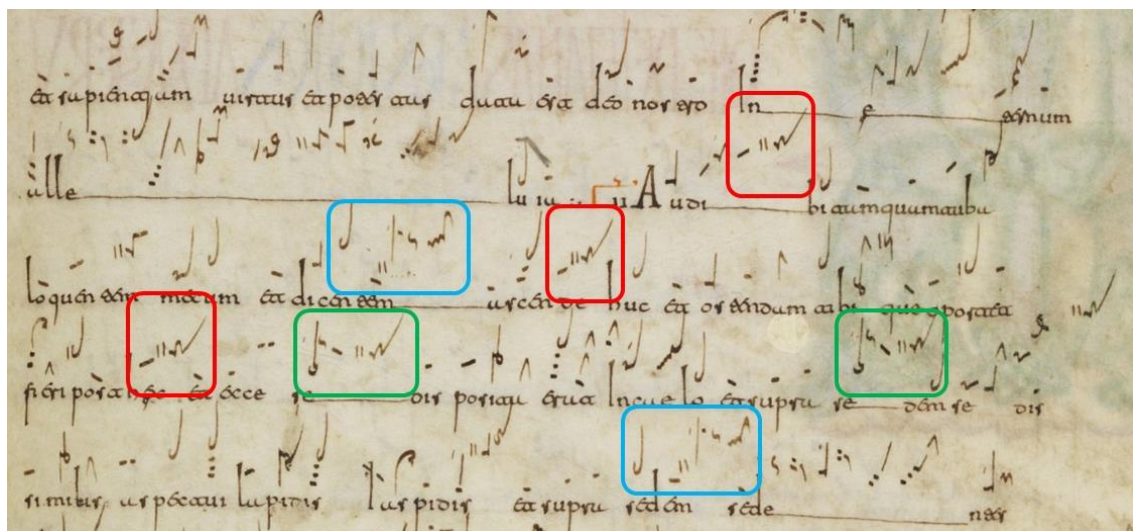 et sapientiam uirtus et potestas data est deo nostro In e ternum
alle lu ia Audi bi tamquam tuba
loquentem mecum et dicentem ascende huc et ostendam tibi que oportet
fieri post hec et ecce se dis posita erat In celo et supra se dem se dis
similis aspectui lapidis Iaspidis et supra sedem sede ntes